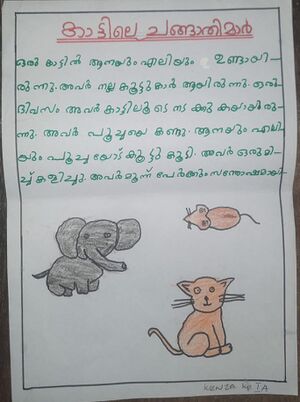 കാട്ടിലെ ചങ്ങാതിമാർ
ഒരു കാട്ടിൽ ആനയും എലിയും ഉണ്ടായി-
രുന്നു. അവർ നല്ല കൂട്ടുകാർ ആയിരുന്നു. ഒരു
ദിവസം അവർ കാട്ടിലൂടെ നടക്കുകയായിരു-
ന്നു. അവർ പൂച്ചയെ കണ്ടു. ആനയും എലി-
യും പൂച്ചയോട് കൂട്ടുകൂടി. അവർ ഒരുമി-
ച്ച് കളിച്ചു. അവർമൂന്ന് പേർക്കും സന്തോഷമായി.
KENZA KP I A